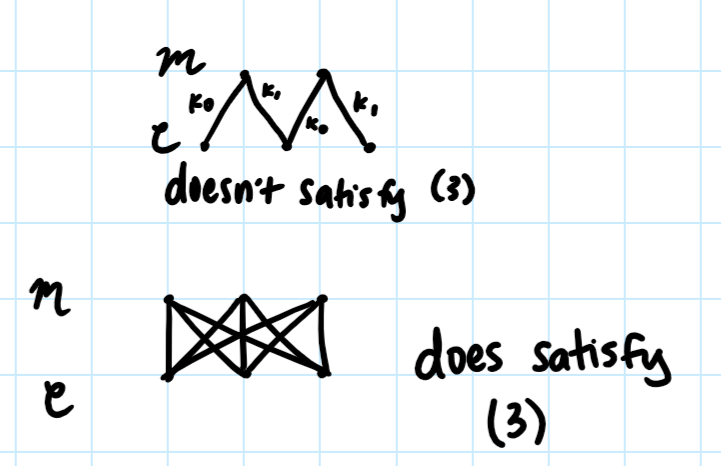 m
k₀ k₁ k₀ k₁
C
doesn't satisfy (3)
m
does satisfy
C
(3)